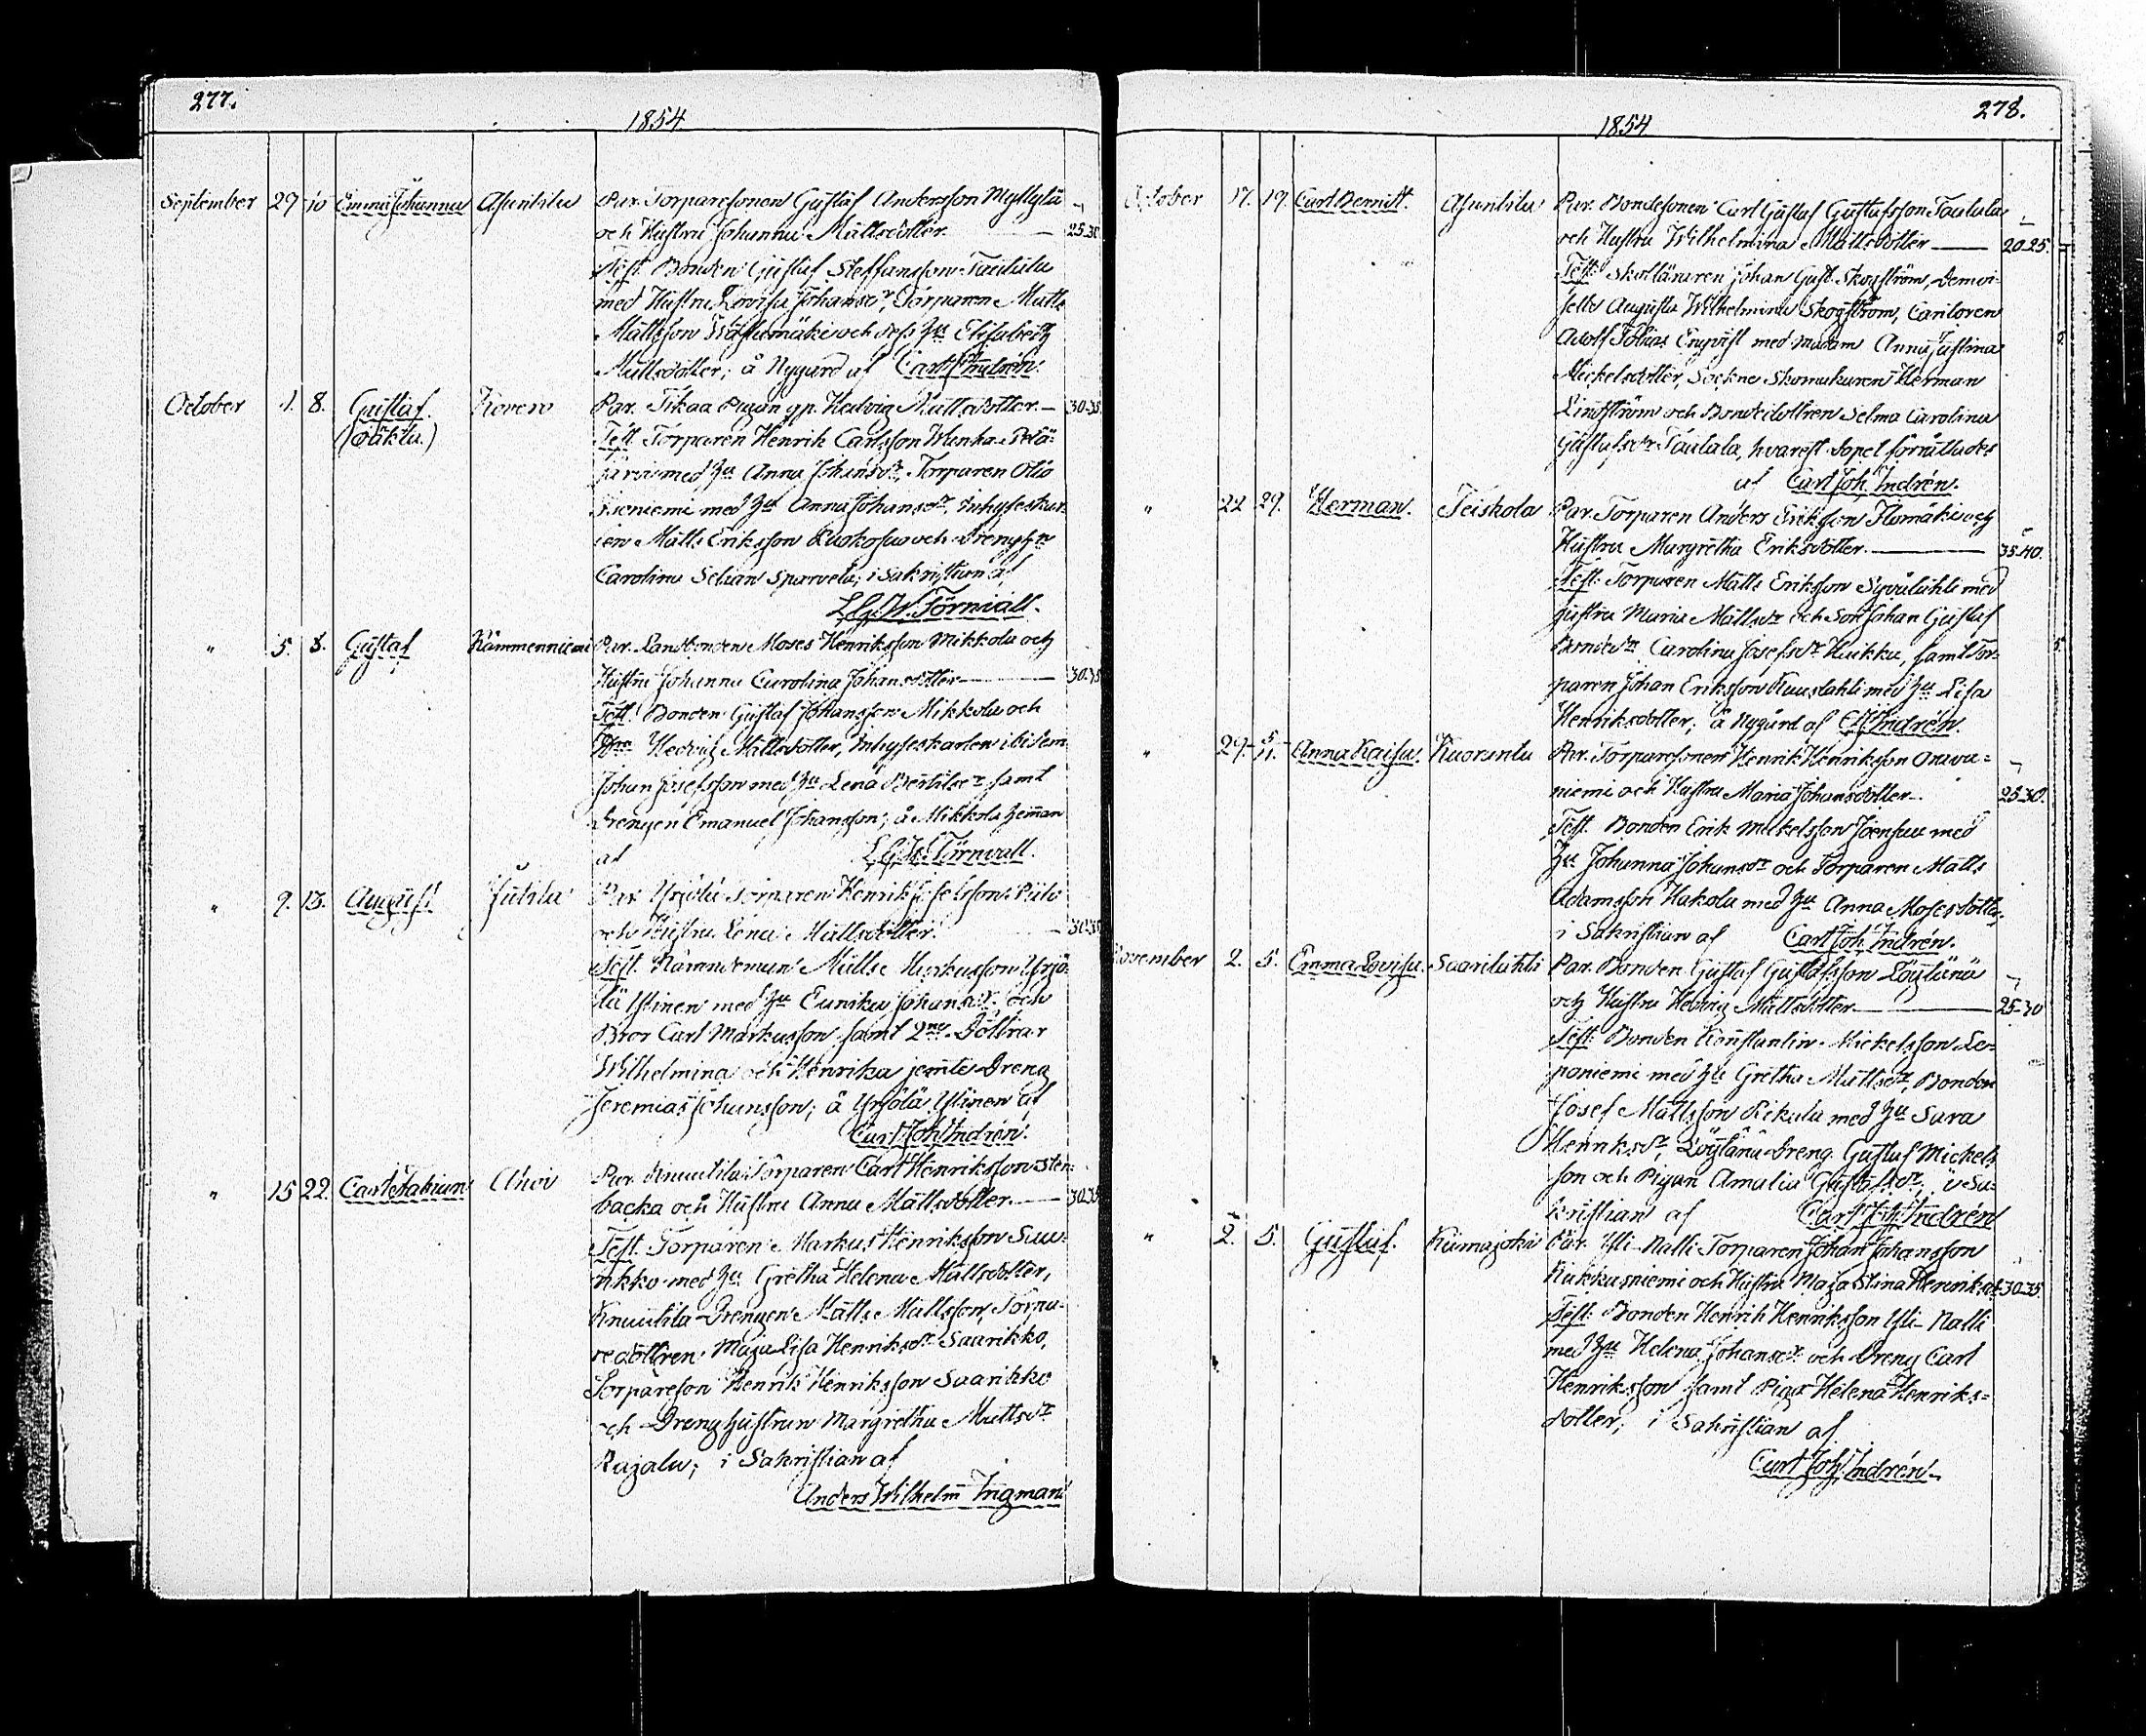 277.
1854
September 29 10 Emma Johanna Asuntila Par. Torparesonen Gustaf Andersson Myllylä
och Hustru Johanna Mattsdotter 25.30
Test. Bonden Gustaf Steffansson Taulala
med Hustru Lovisa Johansdr, Torparen Matts
Mattsson Wästermäki och dess hu Elisabeth
Mattsdotter; å Nygård af Carl Joh Indrén.
October 1. 8. Gustaf Kovero Par. Tikaa Pigan gp. Hedvig Mattsdotter 30.35
(oäkta.) Test. Torparen Henrik Carlsson Wanha Pelä-
järvi med hu Anna Johansdr, Torparen Otto
Kieniemi med hu Anna Johansdr, Inhyseskar-
len Matts Eriksson Ruokosuo och Drenghn
Carolina Selian Sparvela; i Sakristian af
L.G.W. Törnvall.
" 5. 8. Gustaf Kämmenniemi Par. Landbonden Moses Henriksson Mikkola och
Hustru Johanna Carolina Johansdotter 30.35
Test. Bonden Gustaf Johansson Mikkola och
Hedvig Mattsdotter, Inhyseskarlen ibidem
Johan Josefsson med hu Lena Bertilsdr samt
Drengen Emanuel Johansson; å Mikkola heman
af L.G.W. Törnvall.
" 9. 13. August Jutila Par. Yrjölä Torparen Henrik Josefsson Piilo
och Hustru Lena Mattsdotter. 30.35
Test. Nämndeman Matts Markusson Yrjö-
lä Ylinen med hu Eunika Johansdr och
Bror Carl Markusson samt 2ne Döttrar
Wilhelmina och Henrika jemte Dreng
Jeremias Johansson; å Yrjölä Ylinen af
Carl Joh Indrén.
" 15 22. Carl Fabian Uhoi Par. Knuutila Torparen Carl Henriksson Sten-
backa och Hustru Anna Mattsdotter 30.35
Test. Torparen Markus Henriksson Saa-
rikko med hu Gretha Helena Mattsdotter,
Knuutila Drengen Matts Mattsson, Torpa-
redottren Maja Lisa Henriksdr Saarikko,
Torpareson Henrik Henriksson Saarikko
och Dreng hustrun Margretha Mattsdr
Rajala; i Sakristian af
Anders Wilhelm Ingman
278.
1854
October 17. 19. Carl Berndt. Asuntila Par. Bondesonen Carl Gustaf Gustafsson Taulala
och Hustru Wilhelmina Mattsdotter 20.25.
Test: Skolläraren Johan Gust. Skogström, Demoi-
selle Augusta Wilhelmina Skogström,
Adolf Tobias Enqvist med Madam Anna Justina
Mickelsdotter, Sockne Skomakaren Herman
Lindström och Bondedottren Selma Carolina
Gustafsdr Taulala, hvarest dopet förrättades
af Carl Joh. Indrén.
" 22 29. Herman. Teiskola Par. Torparen Anders Eriksson Ilomäki och
Hustru Margretha Eriksdotter. 35.40.
Test: Torparen Matts Eriksson Syvälahti med
hustru Maria Mattsdr och Son Johan Gustaf
Carolina Josefsdr Huikku, samt Tor-
paren Johan Eriksson Kuuslahti med hu Lisa
Henriksdotter; å Nygård af C.J. Indrén.
" 29. 5/11. Anna Kaisa. Kuoranta Par. Torparesonen Henrik Henriksson Orava-
niemi och Hustru Maria Johansdotter. 25.30.
Test. Bonden Erik Mickelsson Joensuu med
hu Johanna Johansdr och Torparen Matts
Adamsson Hakola med hu Anna Mosesdotter;
i Sakristian af Carl Joh. Indrén.
November 2. 5. Emma Lovisa. Saarilahti Par. Bonden Gustaf Gustafsson Löytänä
och Hustru Hedvig Mattsdotter 25.30
Test: Bonden Konstantin Mickelsson Le-
poniemi med hu Gretha Mattsdr, Bonden
Josef Mattsson Rikala med hu Sara
Henriksdr, Löytänä Dreng Gustaf Mickels-
son och Pigan Amalia Gustafsdr, i Sa-
kristian af Carl Joh Indrén
" 2. 5. Gustaf. Kiimajoki Par. Yli-Nalli Torparen Johan Johansson
Kukkusniemi och Hustru Maja Stina Henriksdr 30.35.
Test: Bonden Henrik Henriksson Yli-Nalli
med hu Helena Johansdr och Dreng Carl
Henriksson samt Piga Helena Henriks-
dotter; i Sakristian af
Carl Joh Indrén.